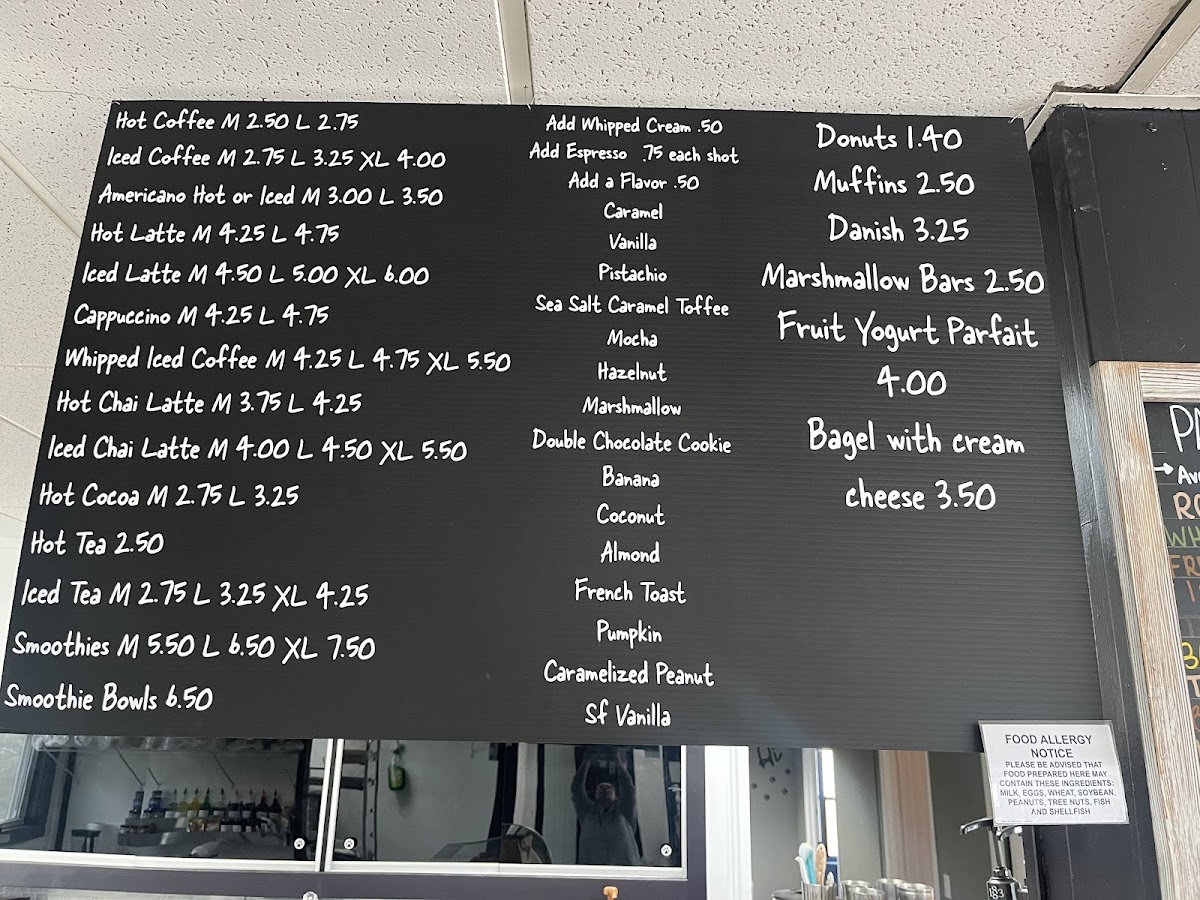 Hot Coffee M 2.50 L 2.75
Iced Coffee M 2.75 L 3.25 XL 4.00
Americano Hot or Iced M 3.00 L 3.50
Hot Latte M 4.25 L 4.75
Iced Latte M 4.50 L 5.00 XL 6.00
Cappuccino M 4.25 L 4.75
Whipped Iced Coffee M 4.25 L 4.75 XL 5.50
Hot Chai Latte M 3.75 L 4.25
Iced Chai Latte M 4.00 L 4.50 XL 5.50
Hot Cocoa M 2.75 L 3.25
Hot Tea 2.50
Iced Tea M 2.75 L 3.25 XL 4.25
Smoothies M 5.50 L 6.50 XL 7.50
Smoothie Bowls 6.50
Add Whipped Cream .50
Add Espresso .75 each shot
Add a Flavor .50
Caramel
Vanilla
Pistachio
Sea Salt Caramel Toffee
Mocha
Hazelnut
Marshmallow
Double Chocolate Cookie
Banana
Coconut
Almond
French Toast
Pumpkin
Caramelized Peanut
Sf Vanilla
Donuts 1.40
Muffins 2.50
Danish 3.25
Marshmallow Bars 2.50
Fruit Yogurt Parfait
4.00
Bagel with cream
cheese 3.50
FOOD ALLERGY
NOTICE
PLEASE BE ADVISED THAT
FOOD PREPARED HERE MAY
CONTAIN THESE INGREDIENTS:
MILK, EGGS, WHEAT, SOYBEAN,
PEANUTS, TREE NUTS, FISH
AND SHELLFISH
1883